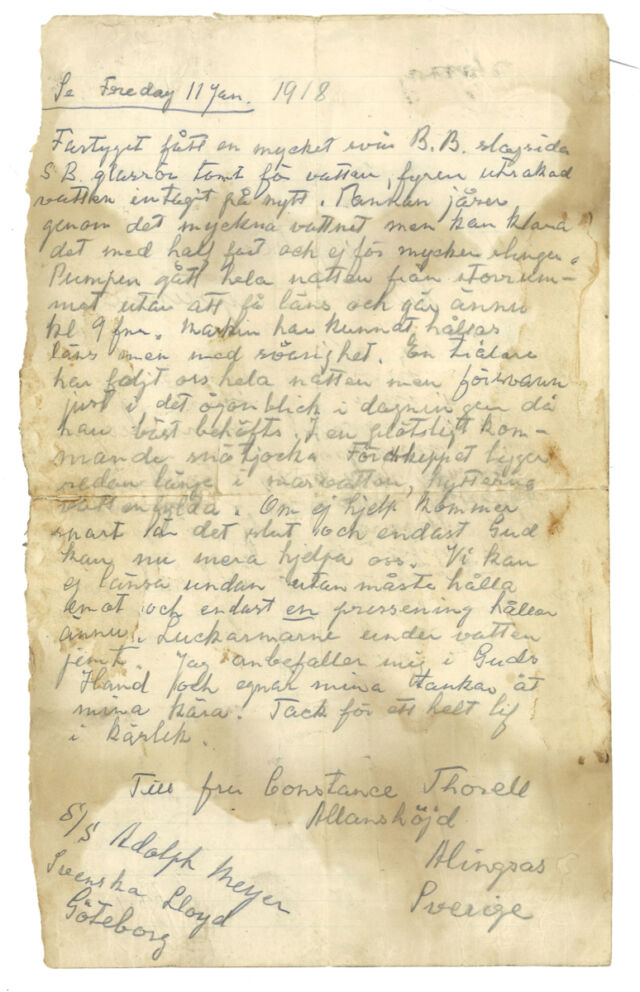 Fredag 11 Jan. 1918
Fartyget fått en mycket svår B.B. slagsida
S B. tomt för vatten, fyren
vatten intagit på nytt.
genom det myckna vattnet men kan klara
det med half fart och ej för mycken slinger.
Pumpen gått hela natten från storrum-
met utan att få läns och går ännu
kl 9 fm. Maskin har kunnat hållas
läns men med svårighet. En
har följt oss hela natten men försvann
just i det ögonblick i dagningen då
han bäst behöfts, i en plötsligt kom-
mande snötjocka Fördskeppet ligger
redan länge i marvatten, hytterna
vattenfyllda. Om ej hjelp kommer
snart är det slut och endast Gud
kan nu mera hjelpa oss. Vi kan
ej länsa undan utan måste hålla
emot och endast en pressening håller
ännu. Luckarmarne under vatten
jemt. Jag anbefaller mig i Guds
Hand och egnar mina tankar åt
mina kära. Tack för ett helt lif
i kärlek.
Till fru Constance Thorell
Allanshöjd
Alingsas
Sverige
S/S Adolph Meyer
Svenska Lloyd
Göteborg